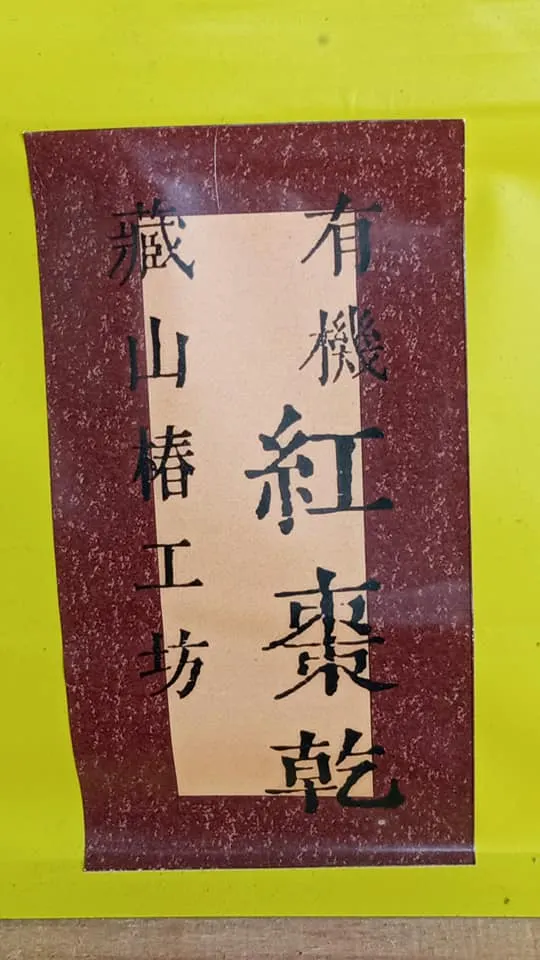 有機紅棗乾
藏山椿工坊